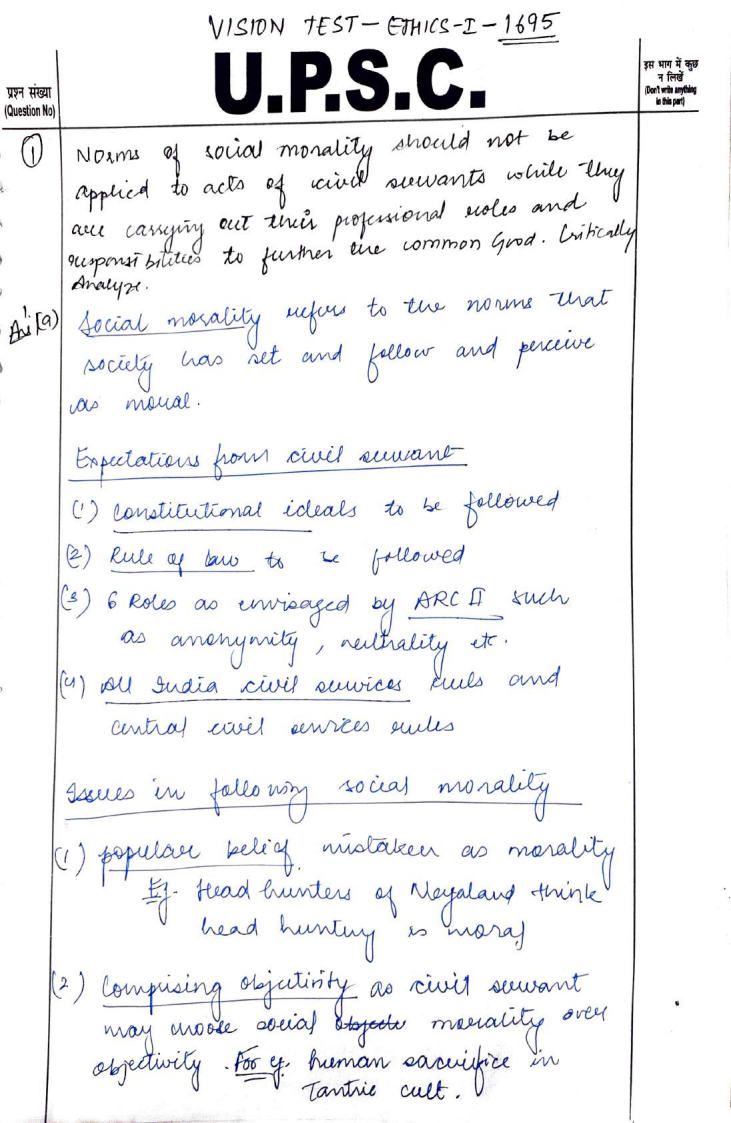 VISION TEST - ETHICS-I - 1695
U.P.S.C.
प्रश्न संख्या
(Question No)
इस भाग में कुछ
न लिखें
(Don't write anything
in this part)
① Norms of social morality should not be
applied to acts of civil servants while they
are carrying out their professional roles and
responsibilities to further the common Good. Critically
Analyze.
Ans 1(a) Social morality refers to the norms that
society has set and follow and perceive
as moral.
Expectations from civil servant
(1) Constitutional ideals to be followed
(2) Rule of law to be followed
(3) 6 Roles as envisaged by ARC II such
as anonymity, neutrality etc.
(4) All India civil services rules and
central civil services rules
Issues in following social morality
(1) popular belief mistaken as morality
Eg. Head hunters of Nagaland think
head hunting is moral
(2) Comprising objectivity as civil servant
may choose social objecte morality over
objectivity. For eg. human sacrifice in
Tantric cult.